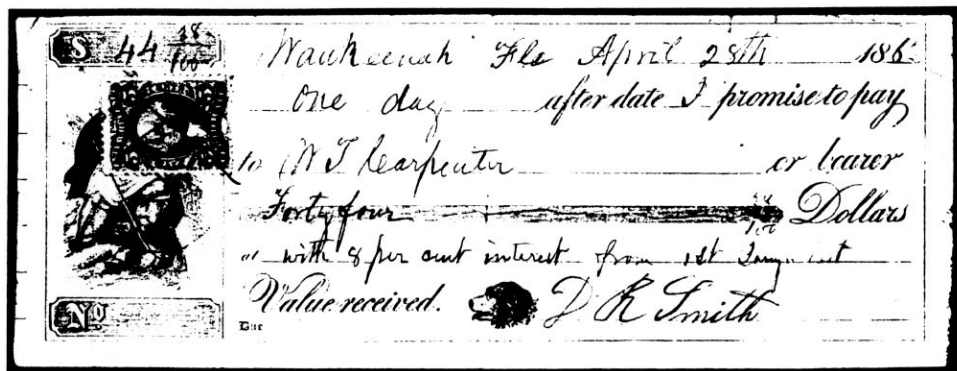 $ 44 48/100 Waukeenah Fla April 28th 186
One day after date I promise to pay
to W T Carpenter or bearer
Forty four /100 Dollars
with 8 per cent interest from 1st
Value received. D R Smith
No
Due